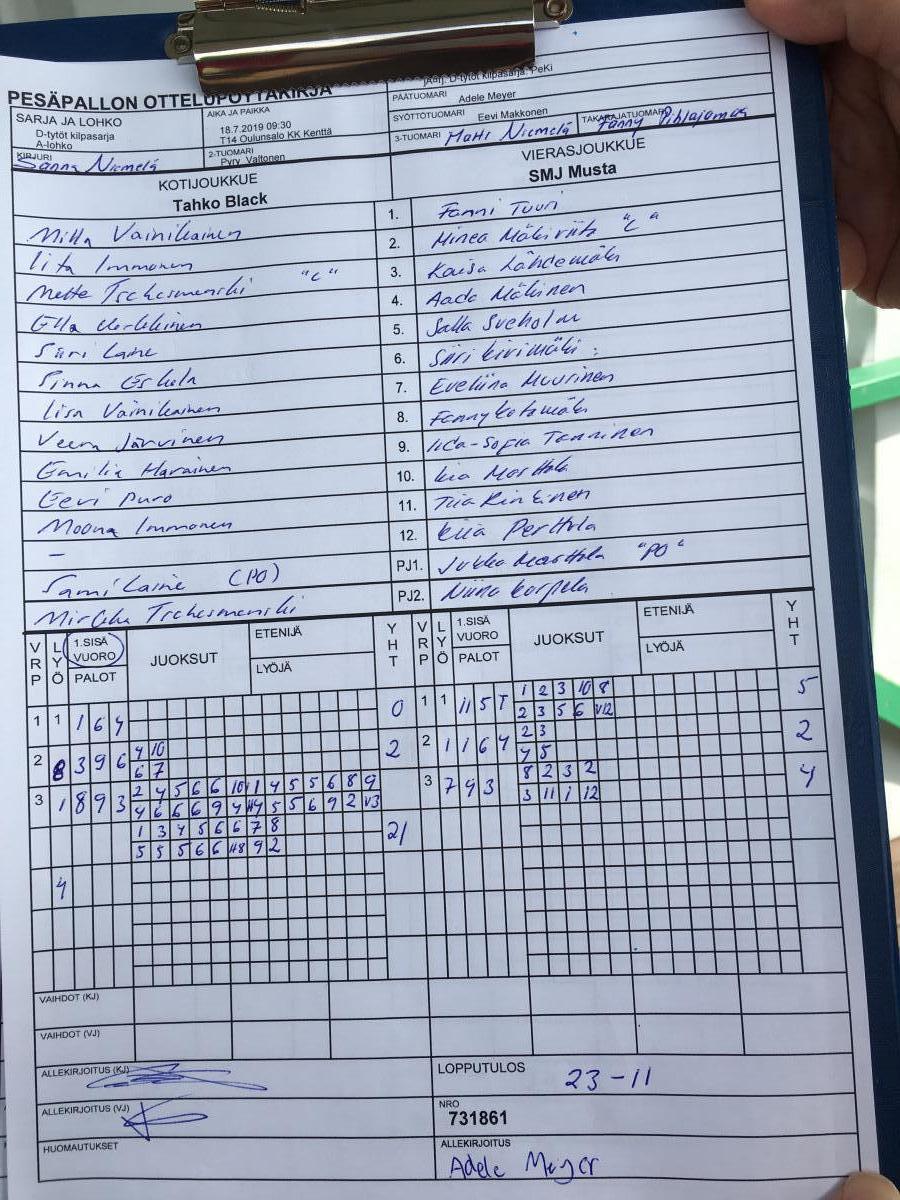 PESÄPALLON OTTELUPÖYTÄKIRJA
SARJA JA LOHKO
D-tytöt kilpasarja
A-lohko
AIKA JA PAIKKA
18.7.2019 09:30
T14 Oulunsalo KK Kenttä
D-tytöt kilpasarja: PeKi
PÄÄTUOMARI Adele Meyer
SYÖTTÖTUOMARI Eevi Makkonen
KIRJURI Sanna Niemelä
2-TUOMARI Pyry Valtonen
3-TUOMARI Matti Niemelä
TAKARAJATUOMARI Fanny Pihlajamaa
KOTIJOUKKUE
Tahko Black
VIERASJOUKKUE
SMJ Musta
Milla Vainikainen 1. Fanni Tuuri
Iita Immonen 2. Minea Mäkiviita "C"
Mette Tschesmenski "C" 3. Kaisa Lähdemäki
Ella Verkkinen 4. Aada Mäkinen
Siiri Laine 5. Salla Sveholm
Pinna Eskola 6. Siiri Kivimäki
Iisa Vainikainen 7. Eveliina Muurinen
Veera Järvinen 8. Fanny Kotamäki
Emilia Harainen 9. Iida-Sofia Tanninen
Eevi Puro 10. Kia Marttola
Moona Immonen 11. Tiia Rinkinen
– 12. Kiia Perttola
Sami Laine (PO) PJ1. Jukka Marttola "PO"
Mirkka Tschesmenski PJ2. Niina Korpela
VRP LYÖ 1.SISÄ VUORO PALOT JUOKSUT ETENIJÄ LYÖJÄ YHT
VRP LYÖ 1.SISÄ VUORO PALOT JUOKSUT ETENIJÄ LYÖJÄ YHT
1 1 1 6 4 0
1 1 11 5 T 1 2 3 10 8 5
2 3 5 6 V12
2 8 3 9 6 4 10 2
6 7
2 1 1 6 4 2 3 2
4 5
3 1 8 9 3 2 4 5 6 6 10 1 4 5 5 6 8 9
4 6 6 6 9 4 H4 5 5 6 9 2 V3
3 7 9 3 8 2 3 2 4
3 11 1 12
1 3 4 5 6 6 7 8 21
5 5 5 6 6 H8 9 2
4
VAIHDOT (KJ)
VAIHDOT (VJ)
ALLEKIRJOITUS (KJ)
LOPPUTULOS 23-11
ALLEKIRJOITUS (VJ)
NRO
731861
HUOMAUTUKSET
ALLEKIRJOITUS
Adele Meyer